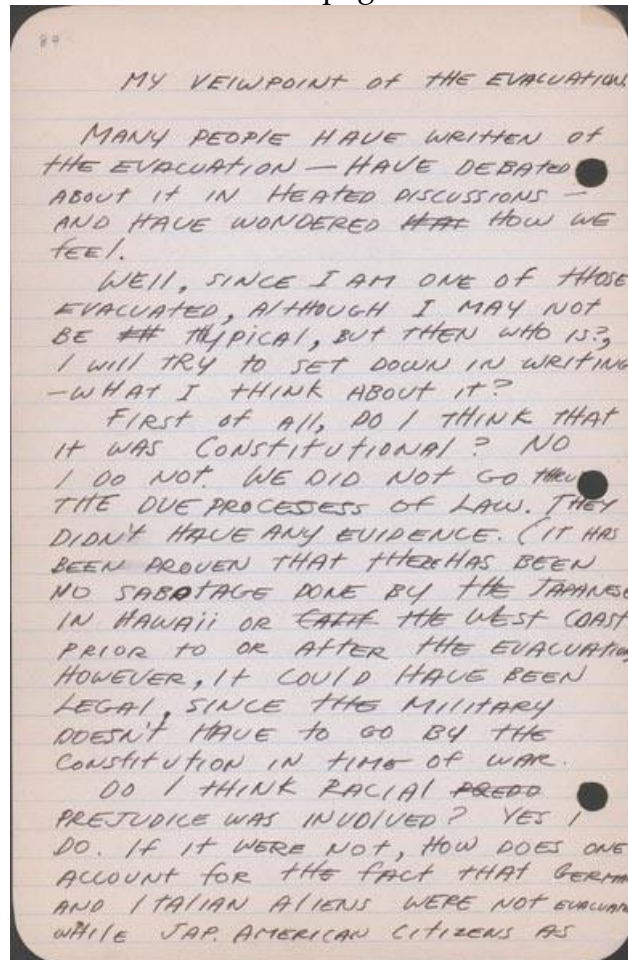 pag
89
MY VEIWPOINT of tHE EVACUAtION
MANY PEOPlE HAVE WRIttEN of
tHE EVACUAtION — HAVE DEBAtED
ABOUt It IN HEAtED DISCUSSIONS —
AND HAVE WONDERED HOW WE
fEEl.
WEll, SINCE I AM ONE Of tHOSE
EVACUAtED, AltHOUGH I MAY NOt
BE tYPICAl, BUt tHEN WHO IS?,
I WIll tRY tO SEt DOWN IN WRItING
— WHAt I tHINK ABOUt It?
FIRSt Of All, DO I tHINK tHAt
It WAS CONStItUtIONAl? NO
I DO NOt. WE DID NOt GO tHRU
tHE DUE PROCESESS Of LAW. tHEY
DIDN't HAVE ANY EVIDENCE. (It HAS
BEEN PROVEN tHAt tHERE HAS BEEN
NO SABOtAGE DONE BY tHE JAPANESE
IN HAWAii OR tHE WESt COASt
PRIOR tO OR AftER tHE EVACUAtION
HOWEVER, It COUlD HAVE BEEN
LEGAl, SINCE tHE MIlItARY
DOESN't HAVE tO GO BY tHE
CONStItUtION IN tIME Of WAR.
DO I tHINK RACIAl
PREJUDICE WAS INVOlVED? YES I
DO. If It WERE NOt, HOW DOES ONE
ACCOUNt fOR tHE fACt tHAt GERMAN
AND ItAlIAN AlIENS WERE NOt EVACUAtED
WHIlE JAP. AMERICAN CItIZENS AS